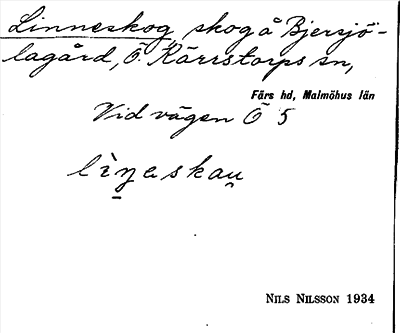 Linneskog, skog å Bjersjö-
lagård, Ö. Kärrstorps sn,
Färs hd, Malmöhus län
Vid vägen Ö 5
lìŋeskau̯
NILS NILSSON 1934